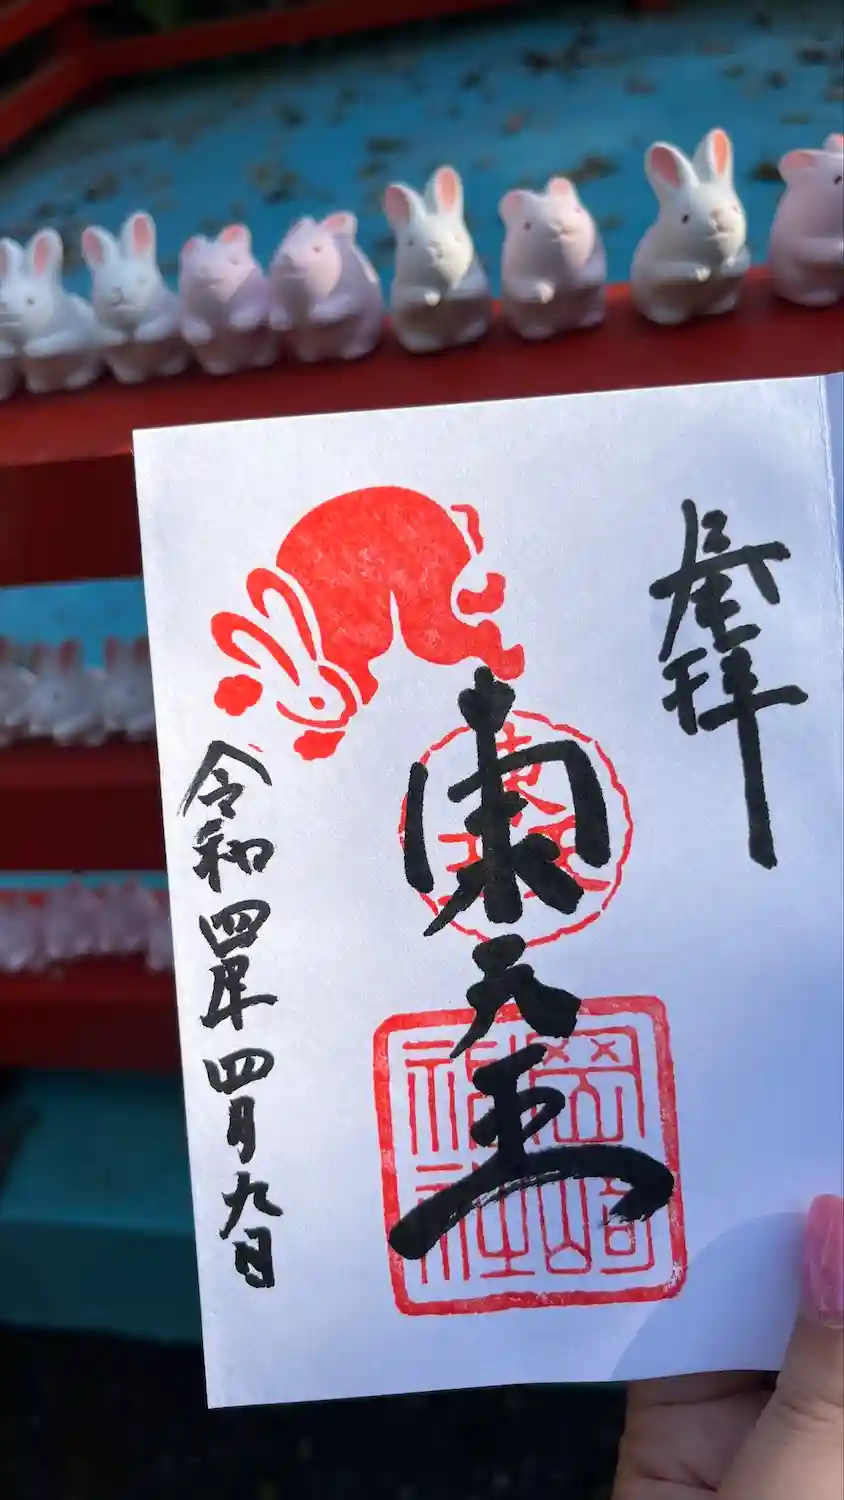 奉拝
東天王
岡崎
神社
令和四年四月九日